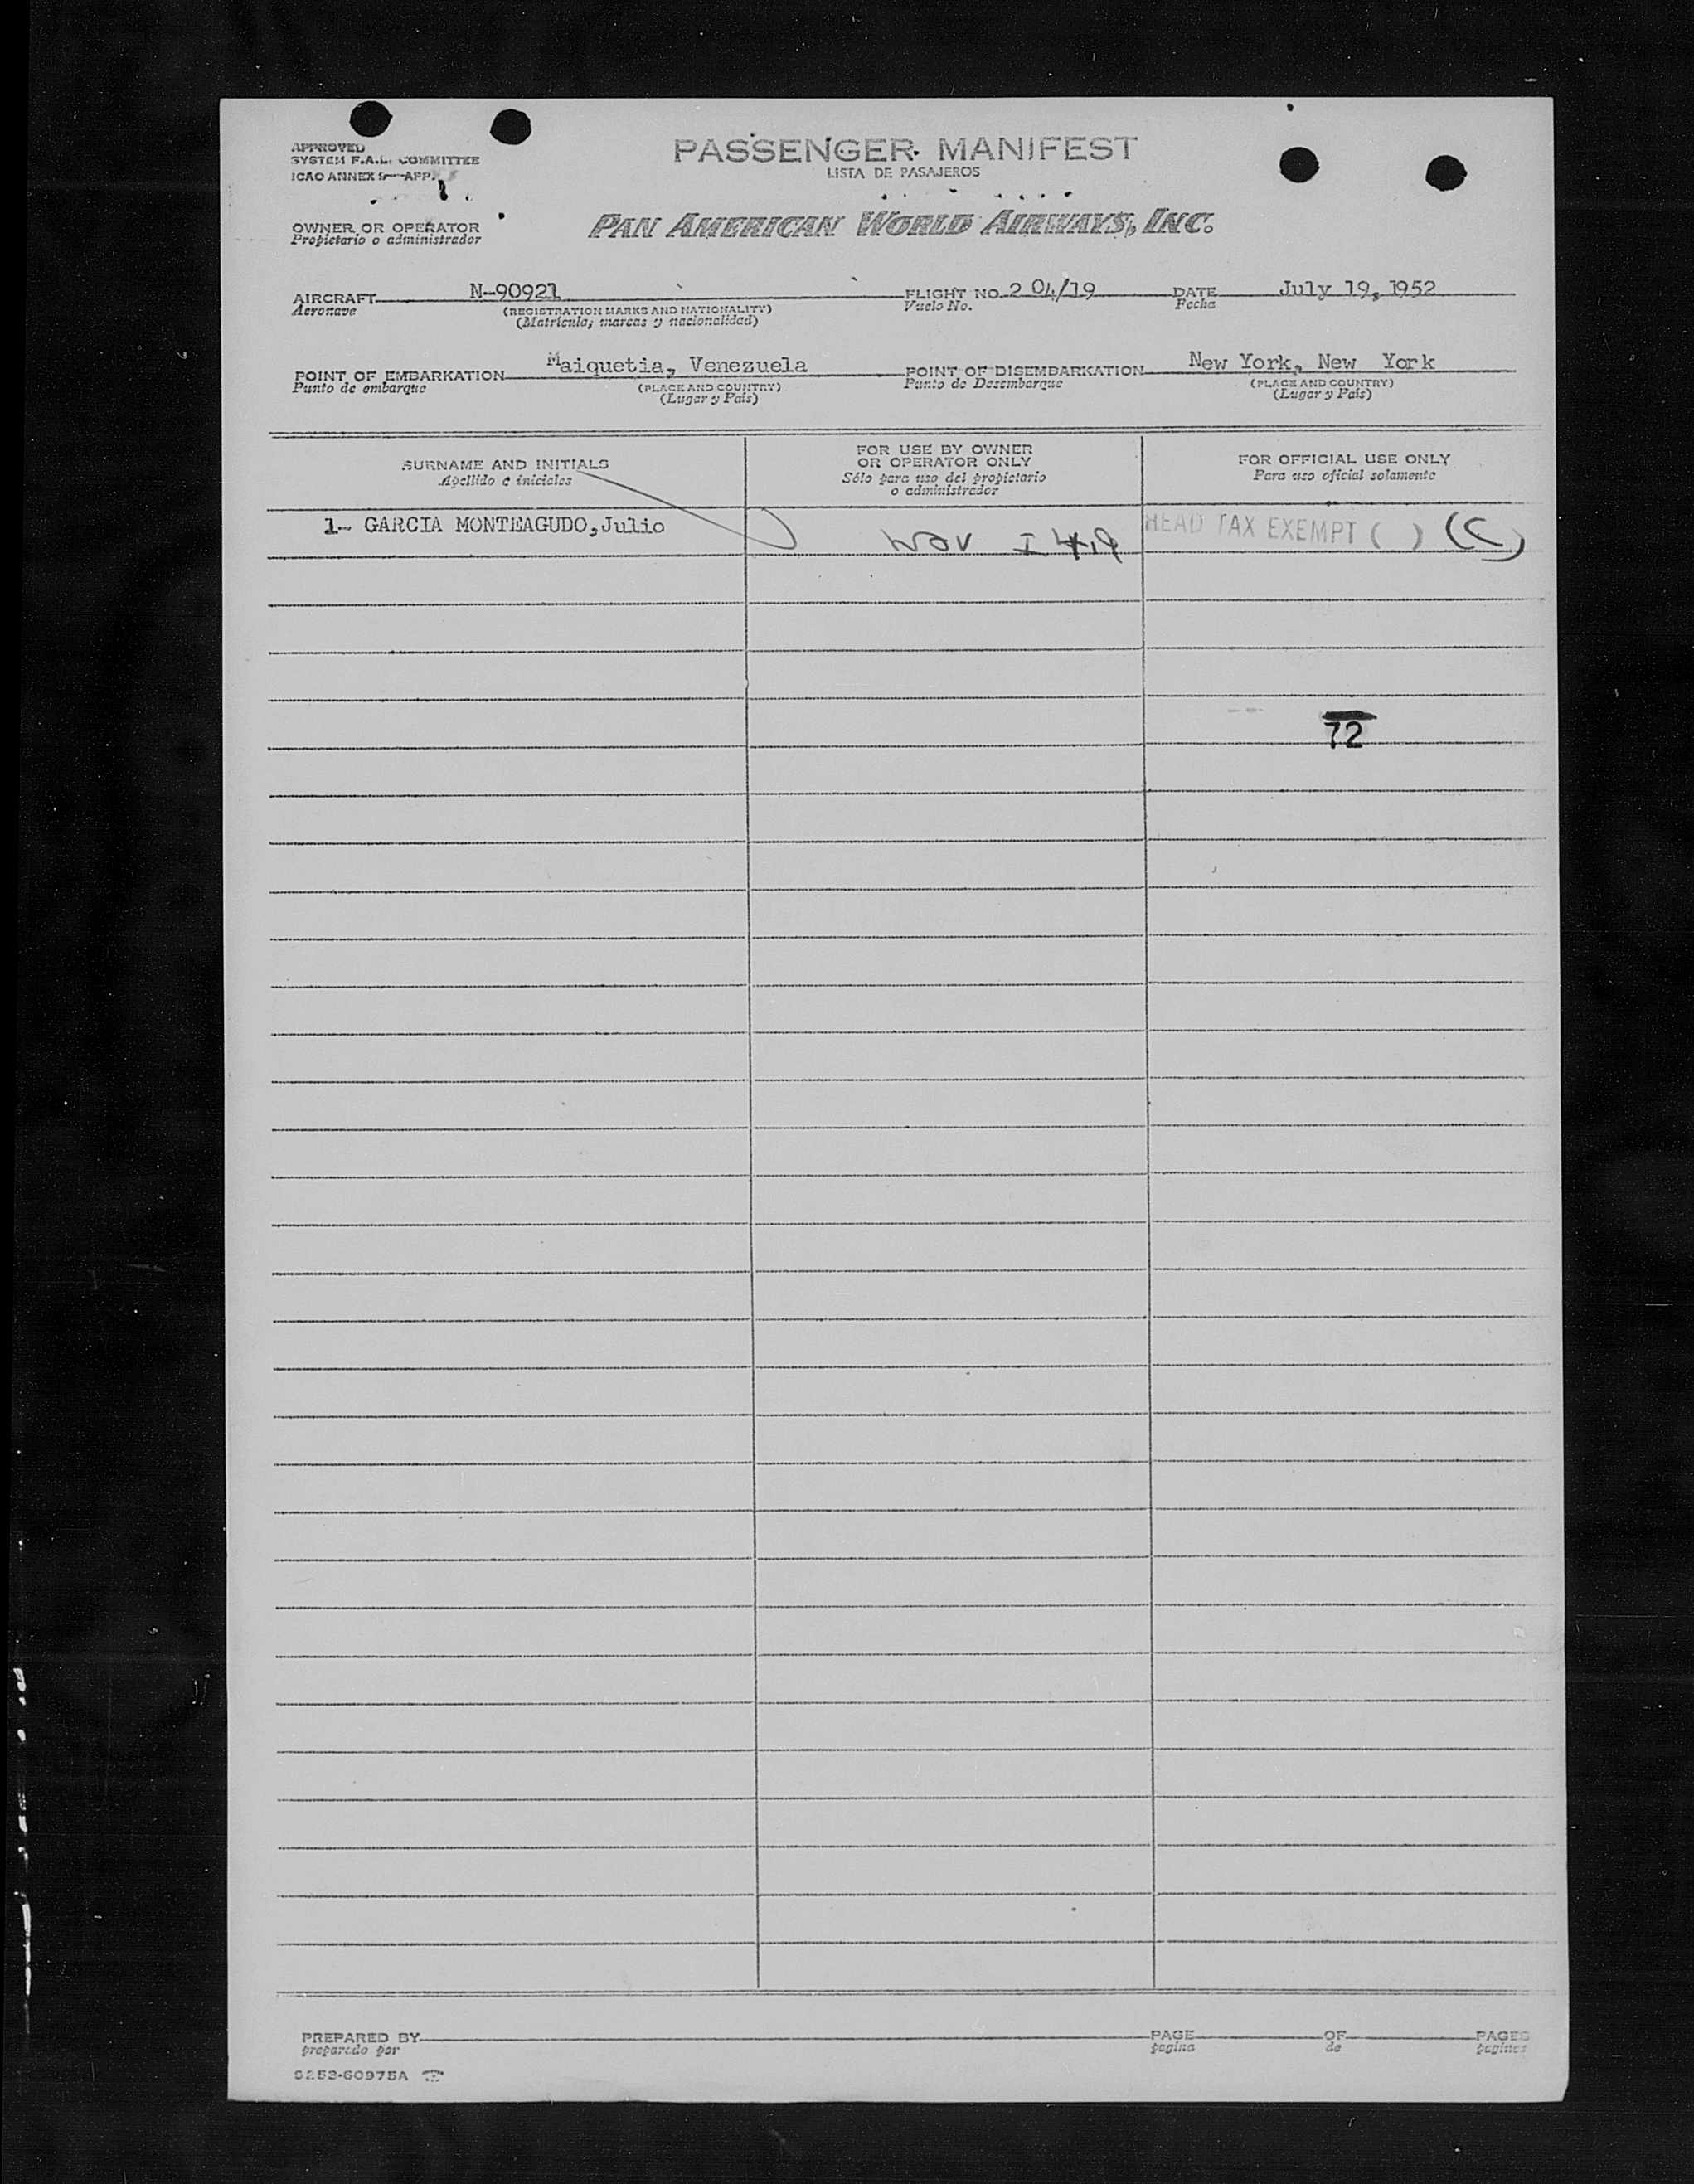 APPROVED
SYSTEM F.A.L. COMMITTEE
ICAO ANNEX 9—APP.
PASSENGER MANIFEST
LISTA DE PASAJEROS
OWNER OR OPERATOR
Propietario o administrador
PAN AMERICAN WORLD AIRWAYS, INC.
AIRCRAFT N-90921 FLIGHT NO. 2 04/19 DATE July 19, 1952
Aeronave (REGISTRATION MARKS AND NATIONALITY) Vuelo No. Fecha
(Matrícula, marcas y nacionalidad)
POINT OF EMBARKATION Maiquetia, Venezuela POINT OF DISEMBARKATION New York, New York
Punto de embarque (PLACE AND COUNTRY) Punto de Desembarque (PLACE AND COUNTRY)
(Lugar y País) (Lugar y País)
SURNAME AND INITIALS
Apellido e iniciales
FOR USE BY OWNER
OR OPERATOR ONLY
Sólo para uso del propietario
o administrador
FOR OFFICIAL USE ONLY
Para uso oficial solamente
1- GARCIA MONTEAGUDO,Julio HEAD TAX EXEMPT ( ) (C)
72
PREPARED BY PAGE OF PAGES
preparado por pagina de paginas
9253-60975A